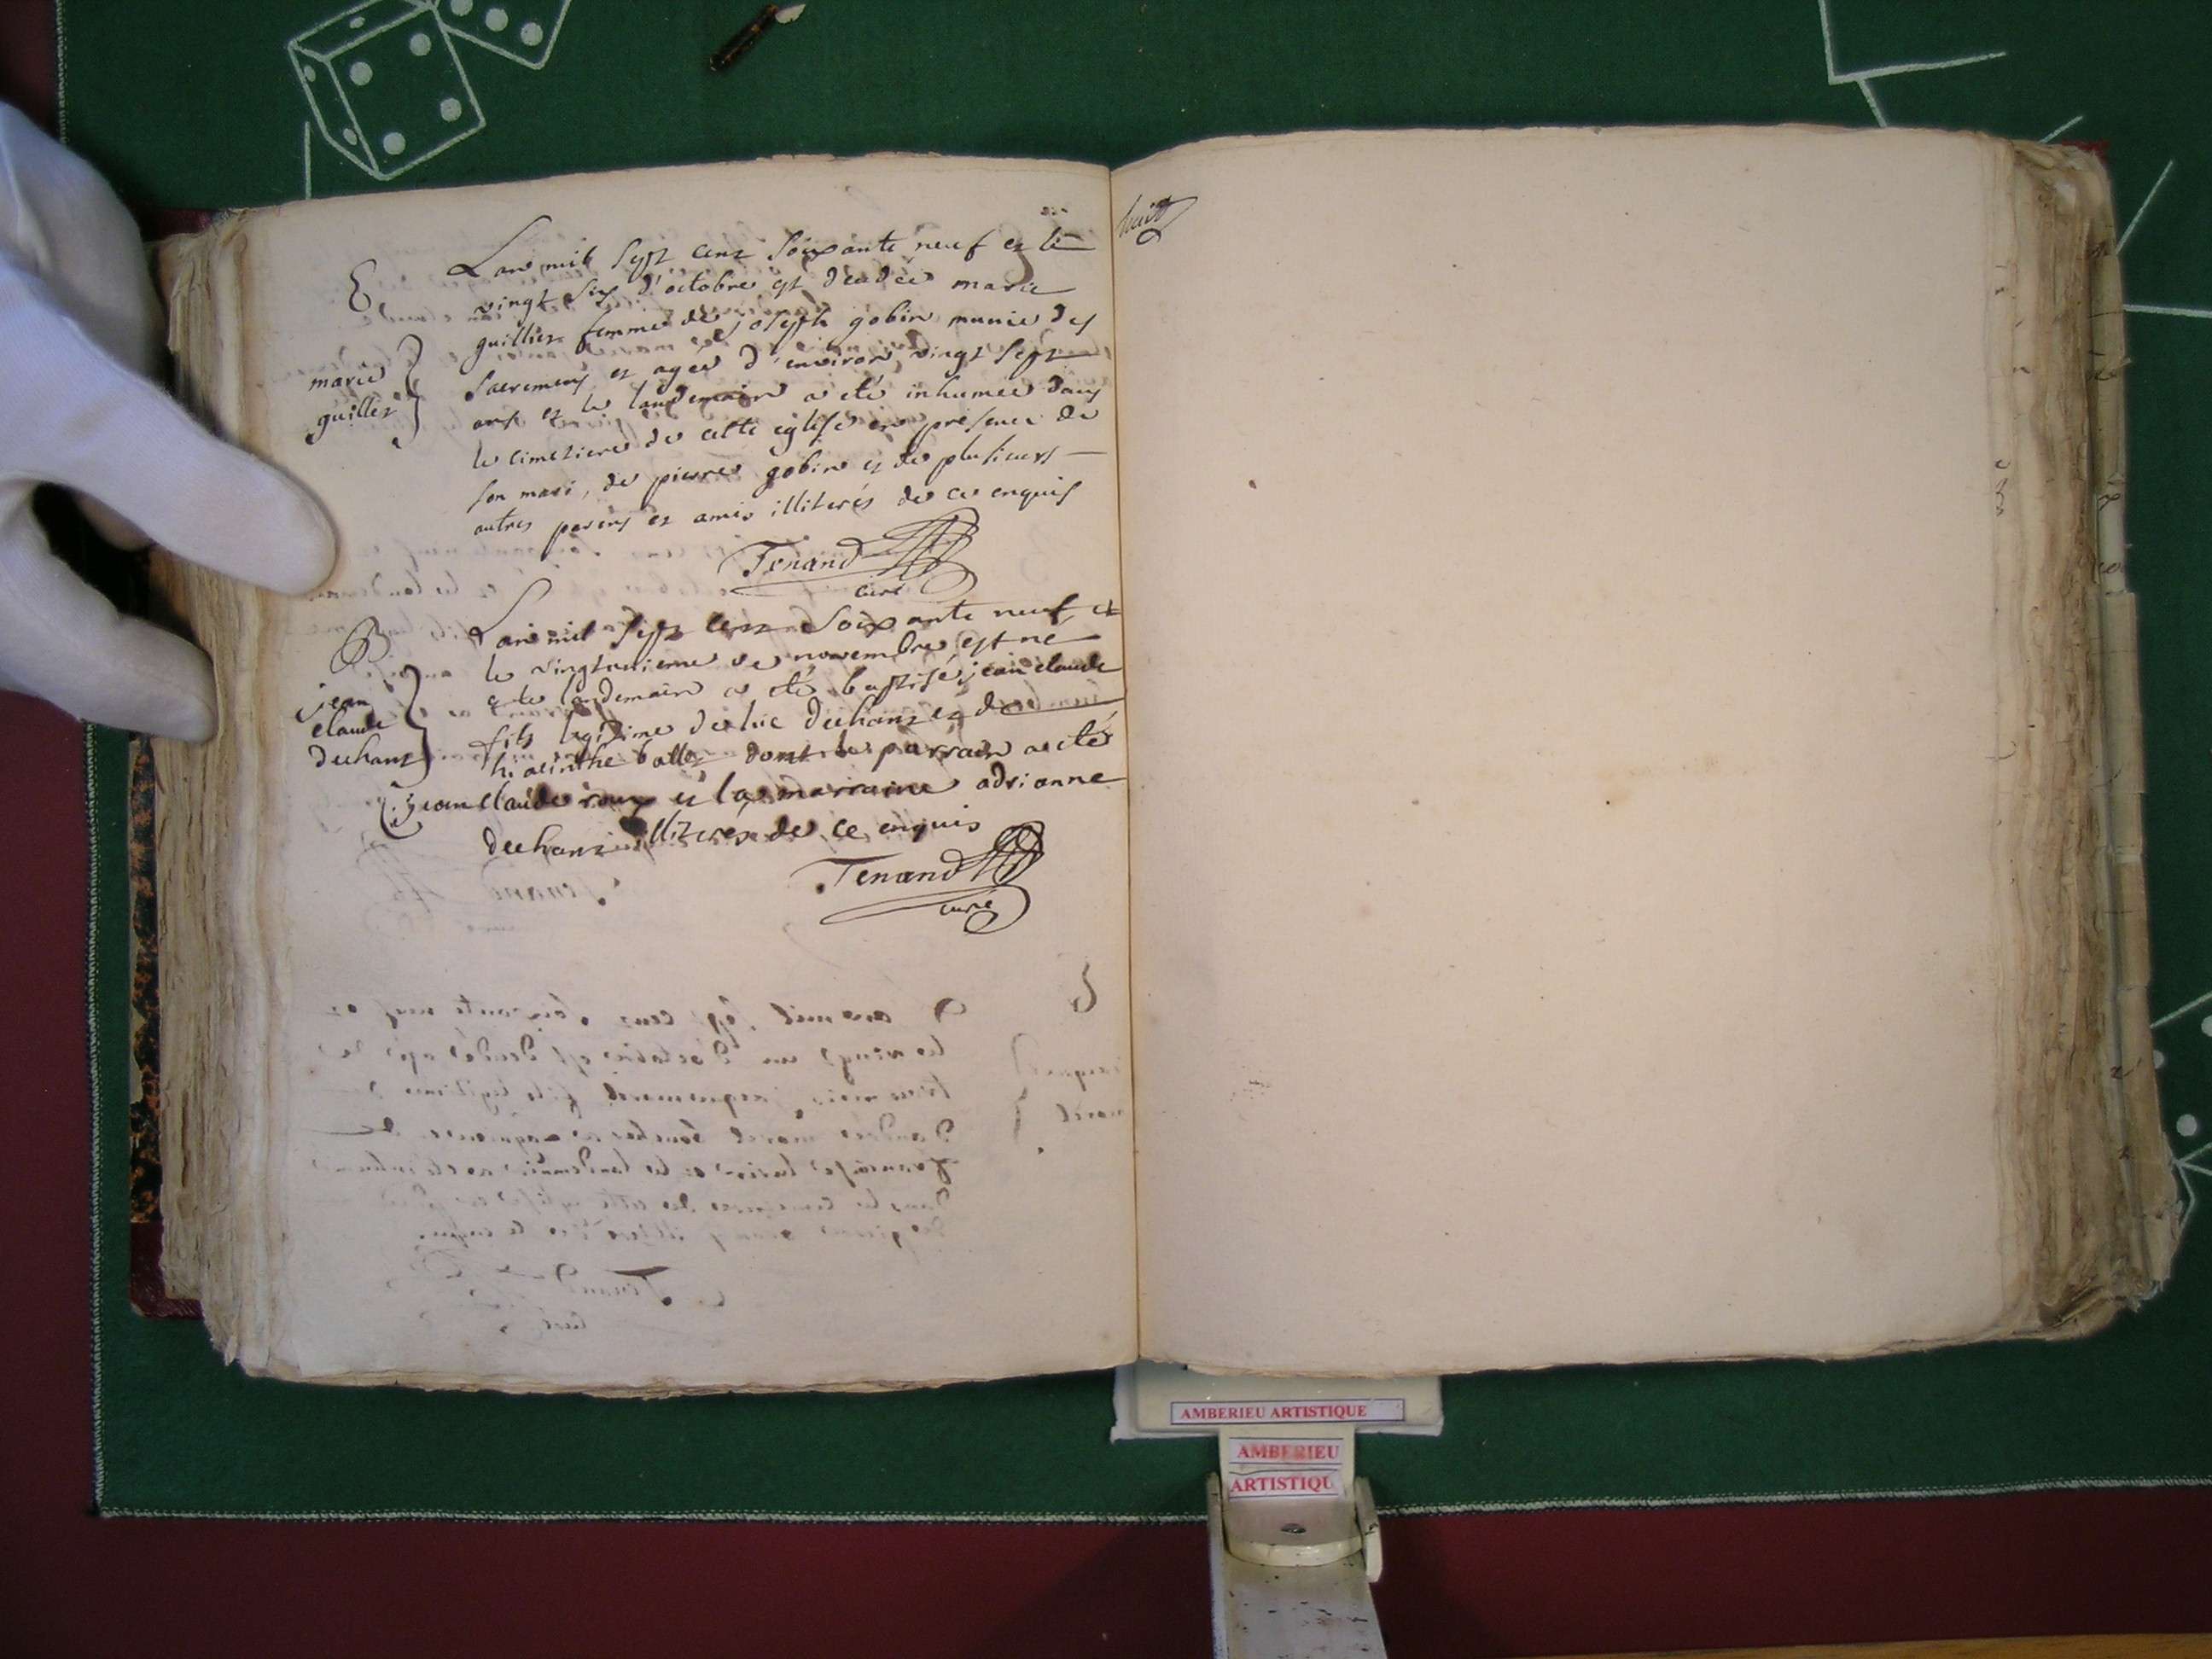 E.
marie
guillet
Lan mil sept cent soixante neuf et le
vingt six d'octobre est decedée marie
guillet femme de joseph gobin munie des
sacremens et agée d'environ vingt sept
ans et le landemain a eté inhumée dans
le cimetiere de cette eglise en presence de
son mari, de pierre gobin et de plusieurs
autres parens et amis illiterés de ce enquis
Tenand
curé
B
jean
claude
dechant
Lan mil sept cent soixante neuf et
le vingtunieme de novembre est né
et le landemain a eté baptisé jean claude
fils legitime de luc dechant et de
hiacinthe ballet dont le parrain a eté
jean claude roux et la marraine adrianne
dechant illiterés de ce enquis
Tenand
curé
huit
AMBERIEU ARTISTIQUE
AMBERIEU
ARTISTIQU